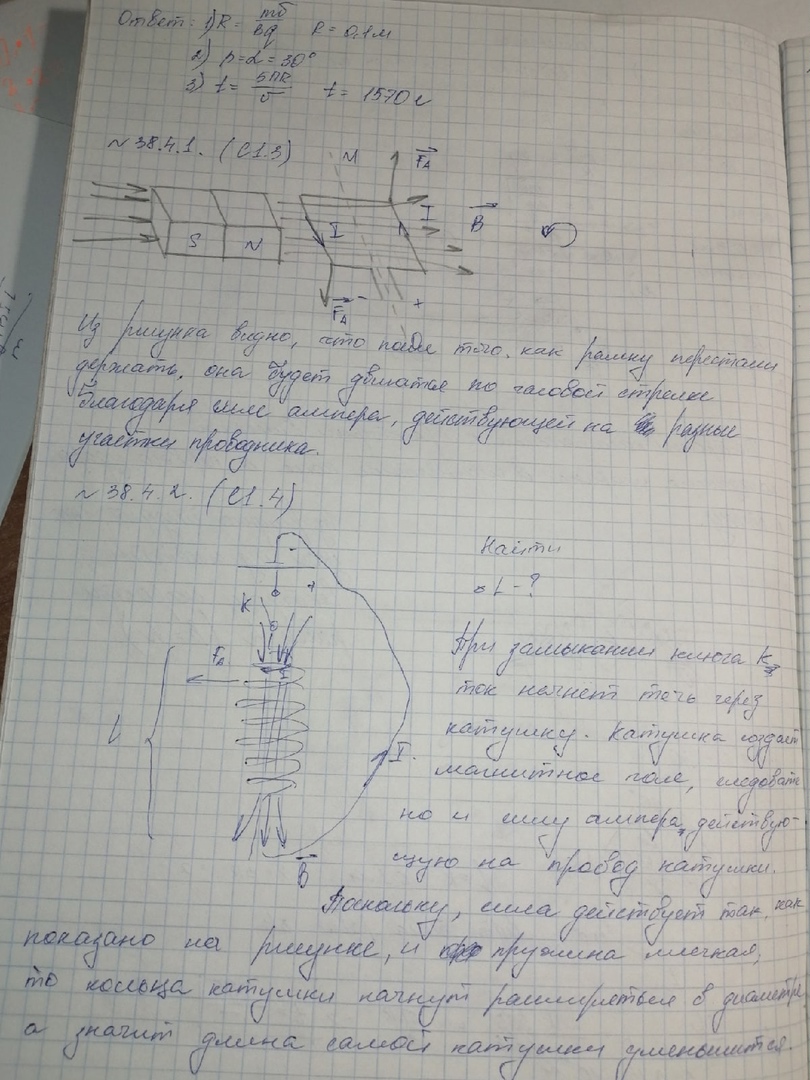 Ответ: 1) R = mv/Bq R = 0,1 м
2) β = α = 30°
3) t = 5πR/v t = 1570 с
№ 38.4.1. (С1.3)
M F_A
I B
S N I
F_A - +
Из рисунка видно, что после того, как рамку перестали
держать, она будет двигаться по часовой стрелке
благодаря силе ампера, действующей на разные
участки проводника.
№ 38.4.2. (С1.4)
Найти
L - ?
- +
K
F_A I
l
I
B
При замыкании ключа K,
ток начнет течь через
катушку. Катушка создает
магнитное поле, следовате
но и силу ампера, действую-
щую на провод катушки.
Поскольку, сила действует так, как
показано на рисунке, и пружина мягкая,
то кольца катушки начнут расширяться в диаметре
а значит длина самой катушки уменьшится.